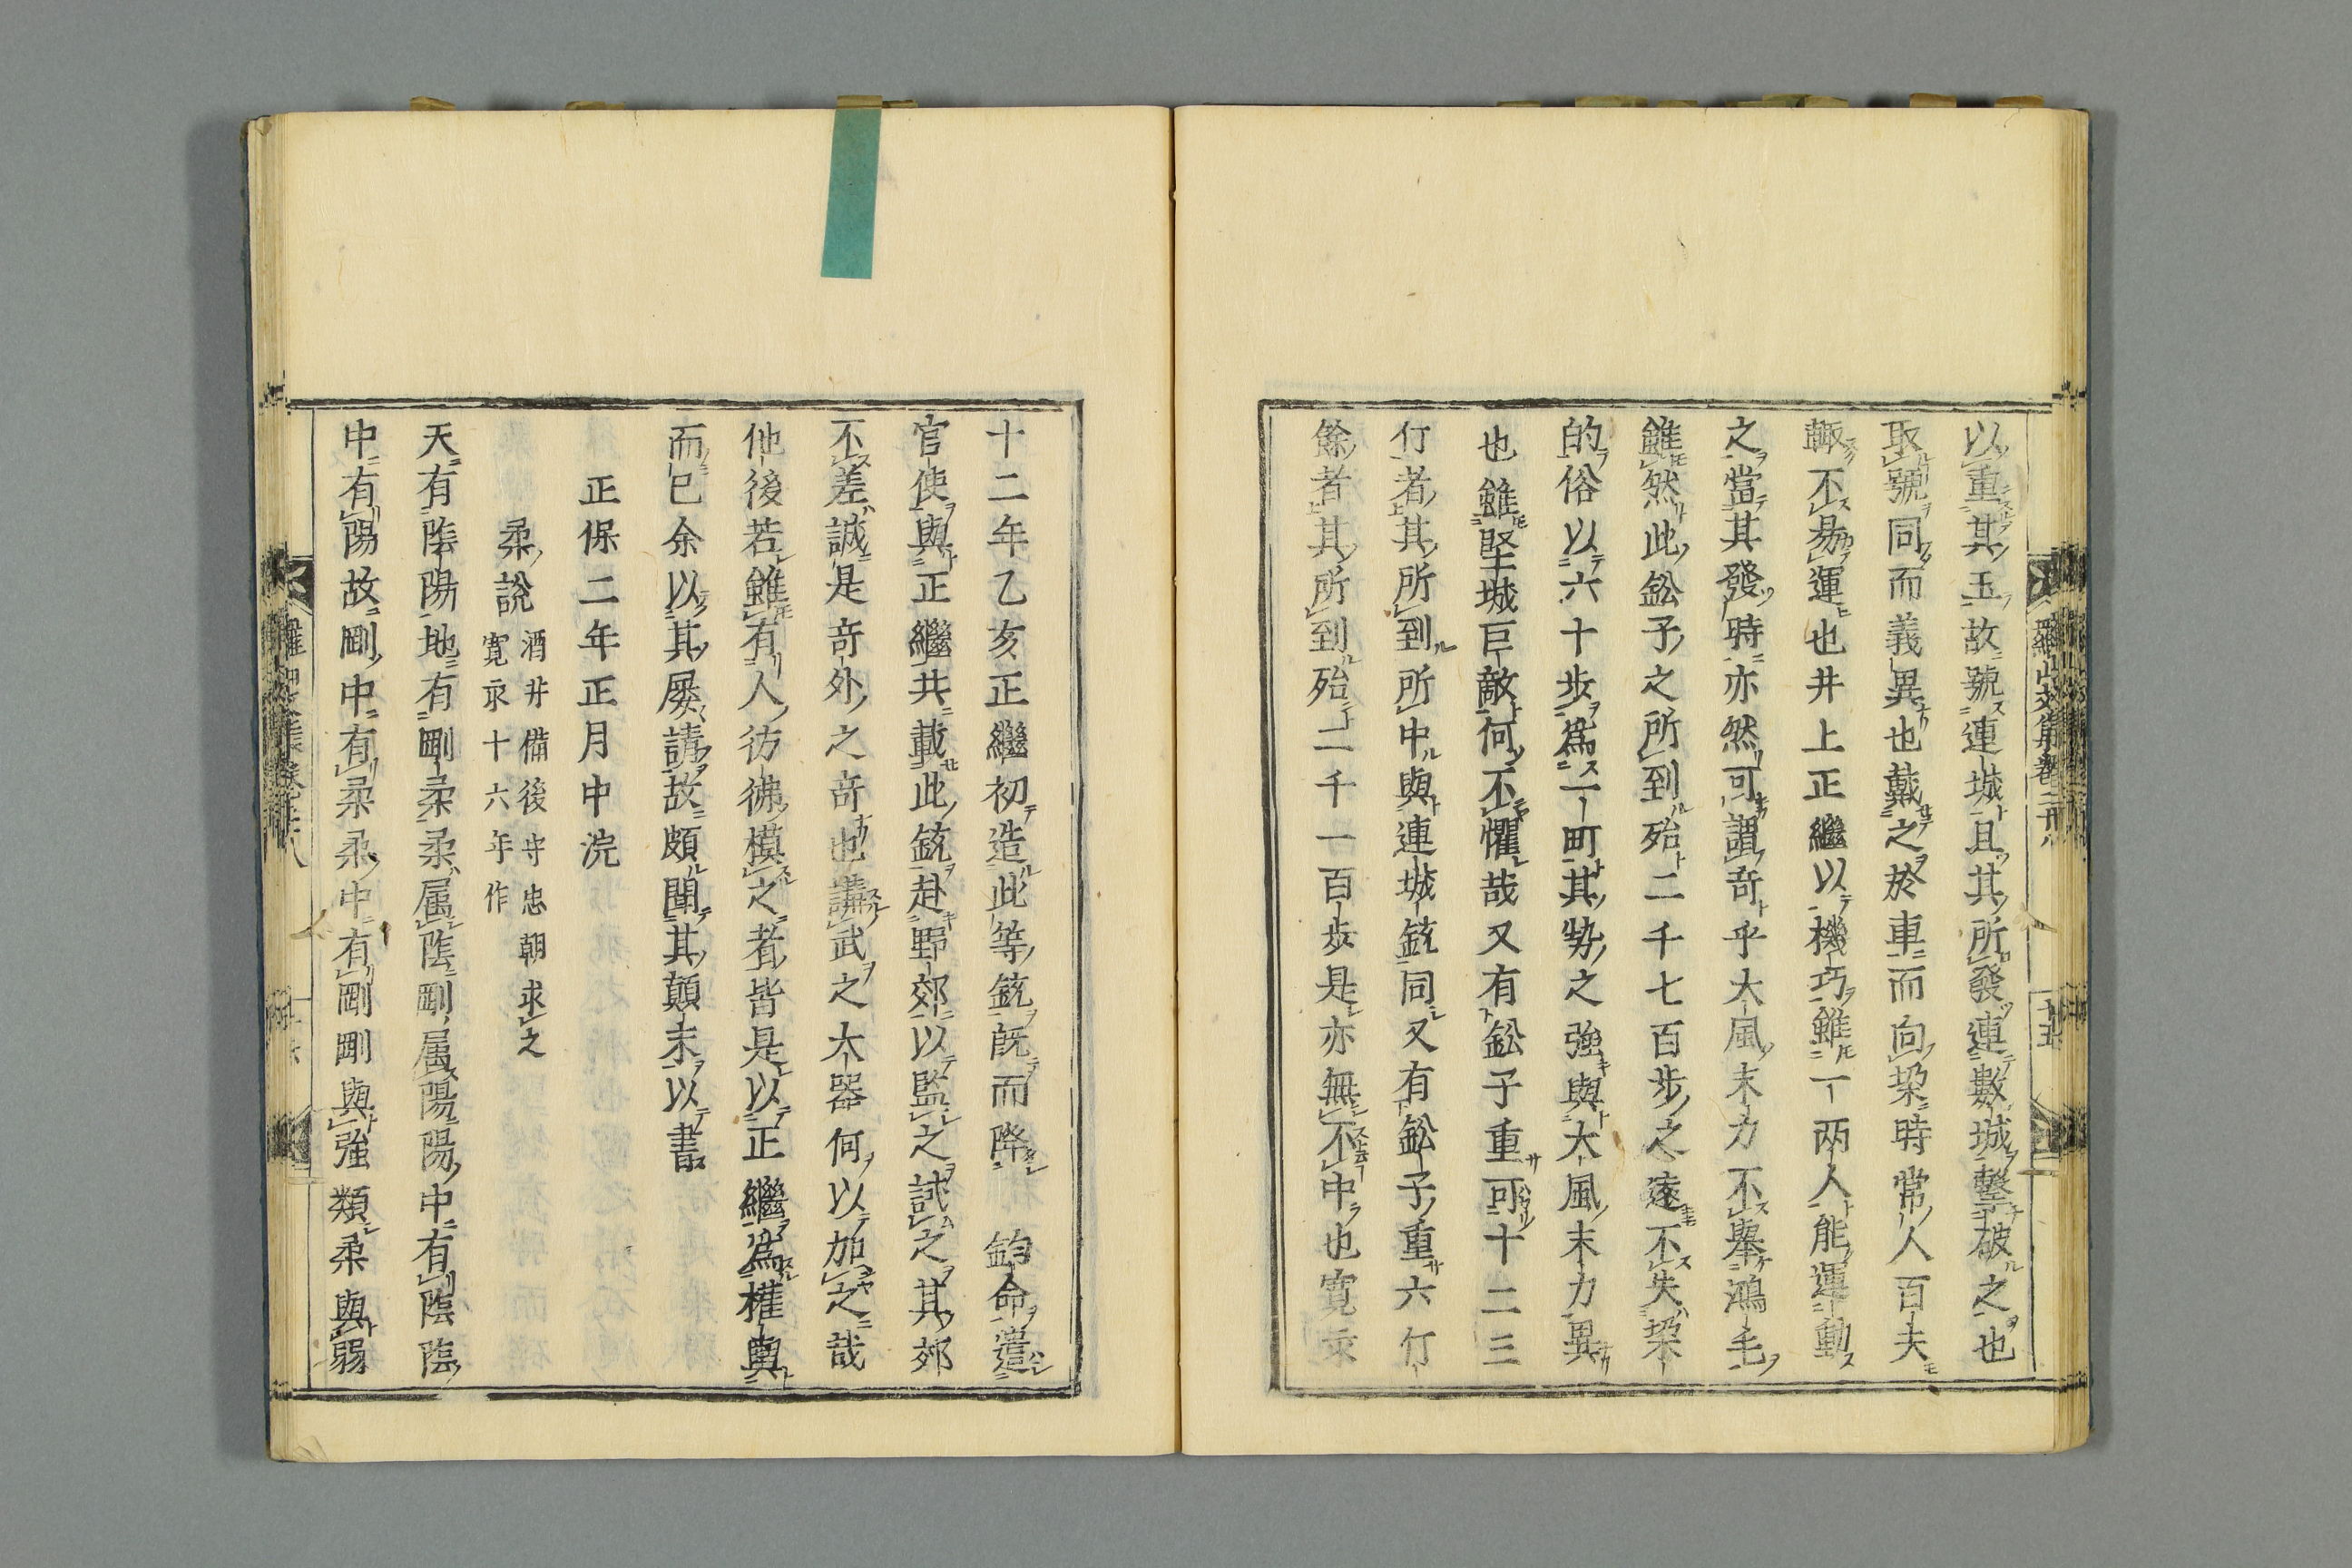 以重其玉故號連城且其所發連數城擊破之也
取號同而義異也載之於車而向垜時常人百夫
輙不易運也井上正繼以機巧雖一兩人能運動
之當其發時亦然可謂奇乎大風末力不擧鴻毛
雖然此鉛子之所到殆二千七百歩之遠不失垜
的俗以六十歩爲一町其勢之強與大風末力異
也雖堅城巨敵何不懼哉又有鉛子重可十二三
仃者其所到所中與連城銃同又有鉛子重六仃
餘者其所到殆二千一百歩是亦無不中也寛永
羅山文集卷二十八
十五
十二年乙亥正繼初造此等銃既而降 鈞命遣
官使與正繼共載此銃赴野郊以監之試之其郊
不差誠是奇外之奇也講武之大器何以加之哉
他後若雖有人彷彿摸之者皆是以正繼爲權輿
而已余以其屡請故頗聞其顛末以書
正保二年正月中浣
柔説 酒井備後守忠朝求之
寛永十六年作
天有陰陽地有剛柔柔属陰剛属陽陽中有陰陰
中有陽故剛中有柔柔中有剛剛與強類柔與弱